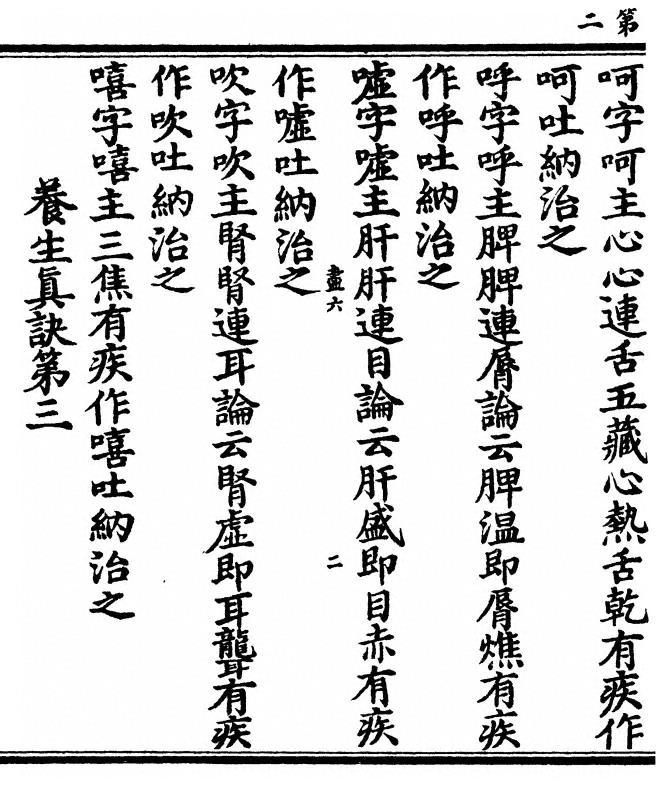 第二
呵字呵主心心連舌五藏心熱舌乾有疾作
呵吐納治之
呼字呼主脾脾連脣論云脾温即脣燋有疾
作呼吐納治之
噓字噓主肝肝連目論云肝盛即目赤有疾
盡六
二
作噓吐納治之
吹字吹主腎腎連耳論云腎虛即耳聾有疾
作吹吐納治之
嘻字嘻主三焦有疾作嘻吐納治之
養生眞訣第三